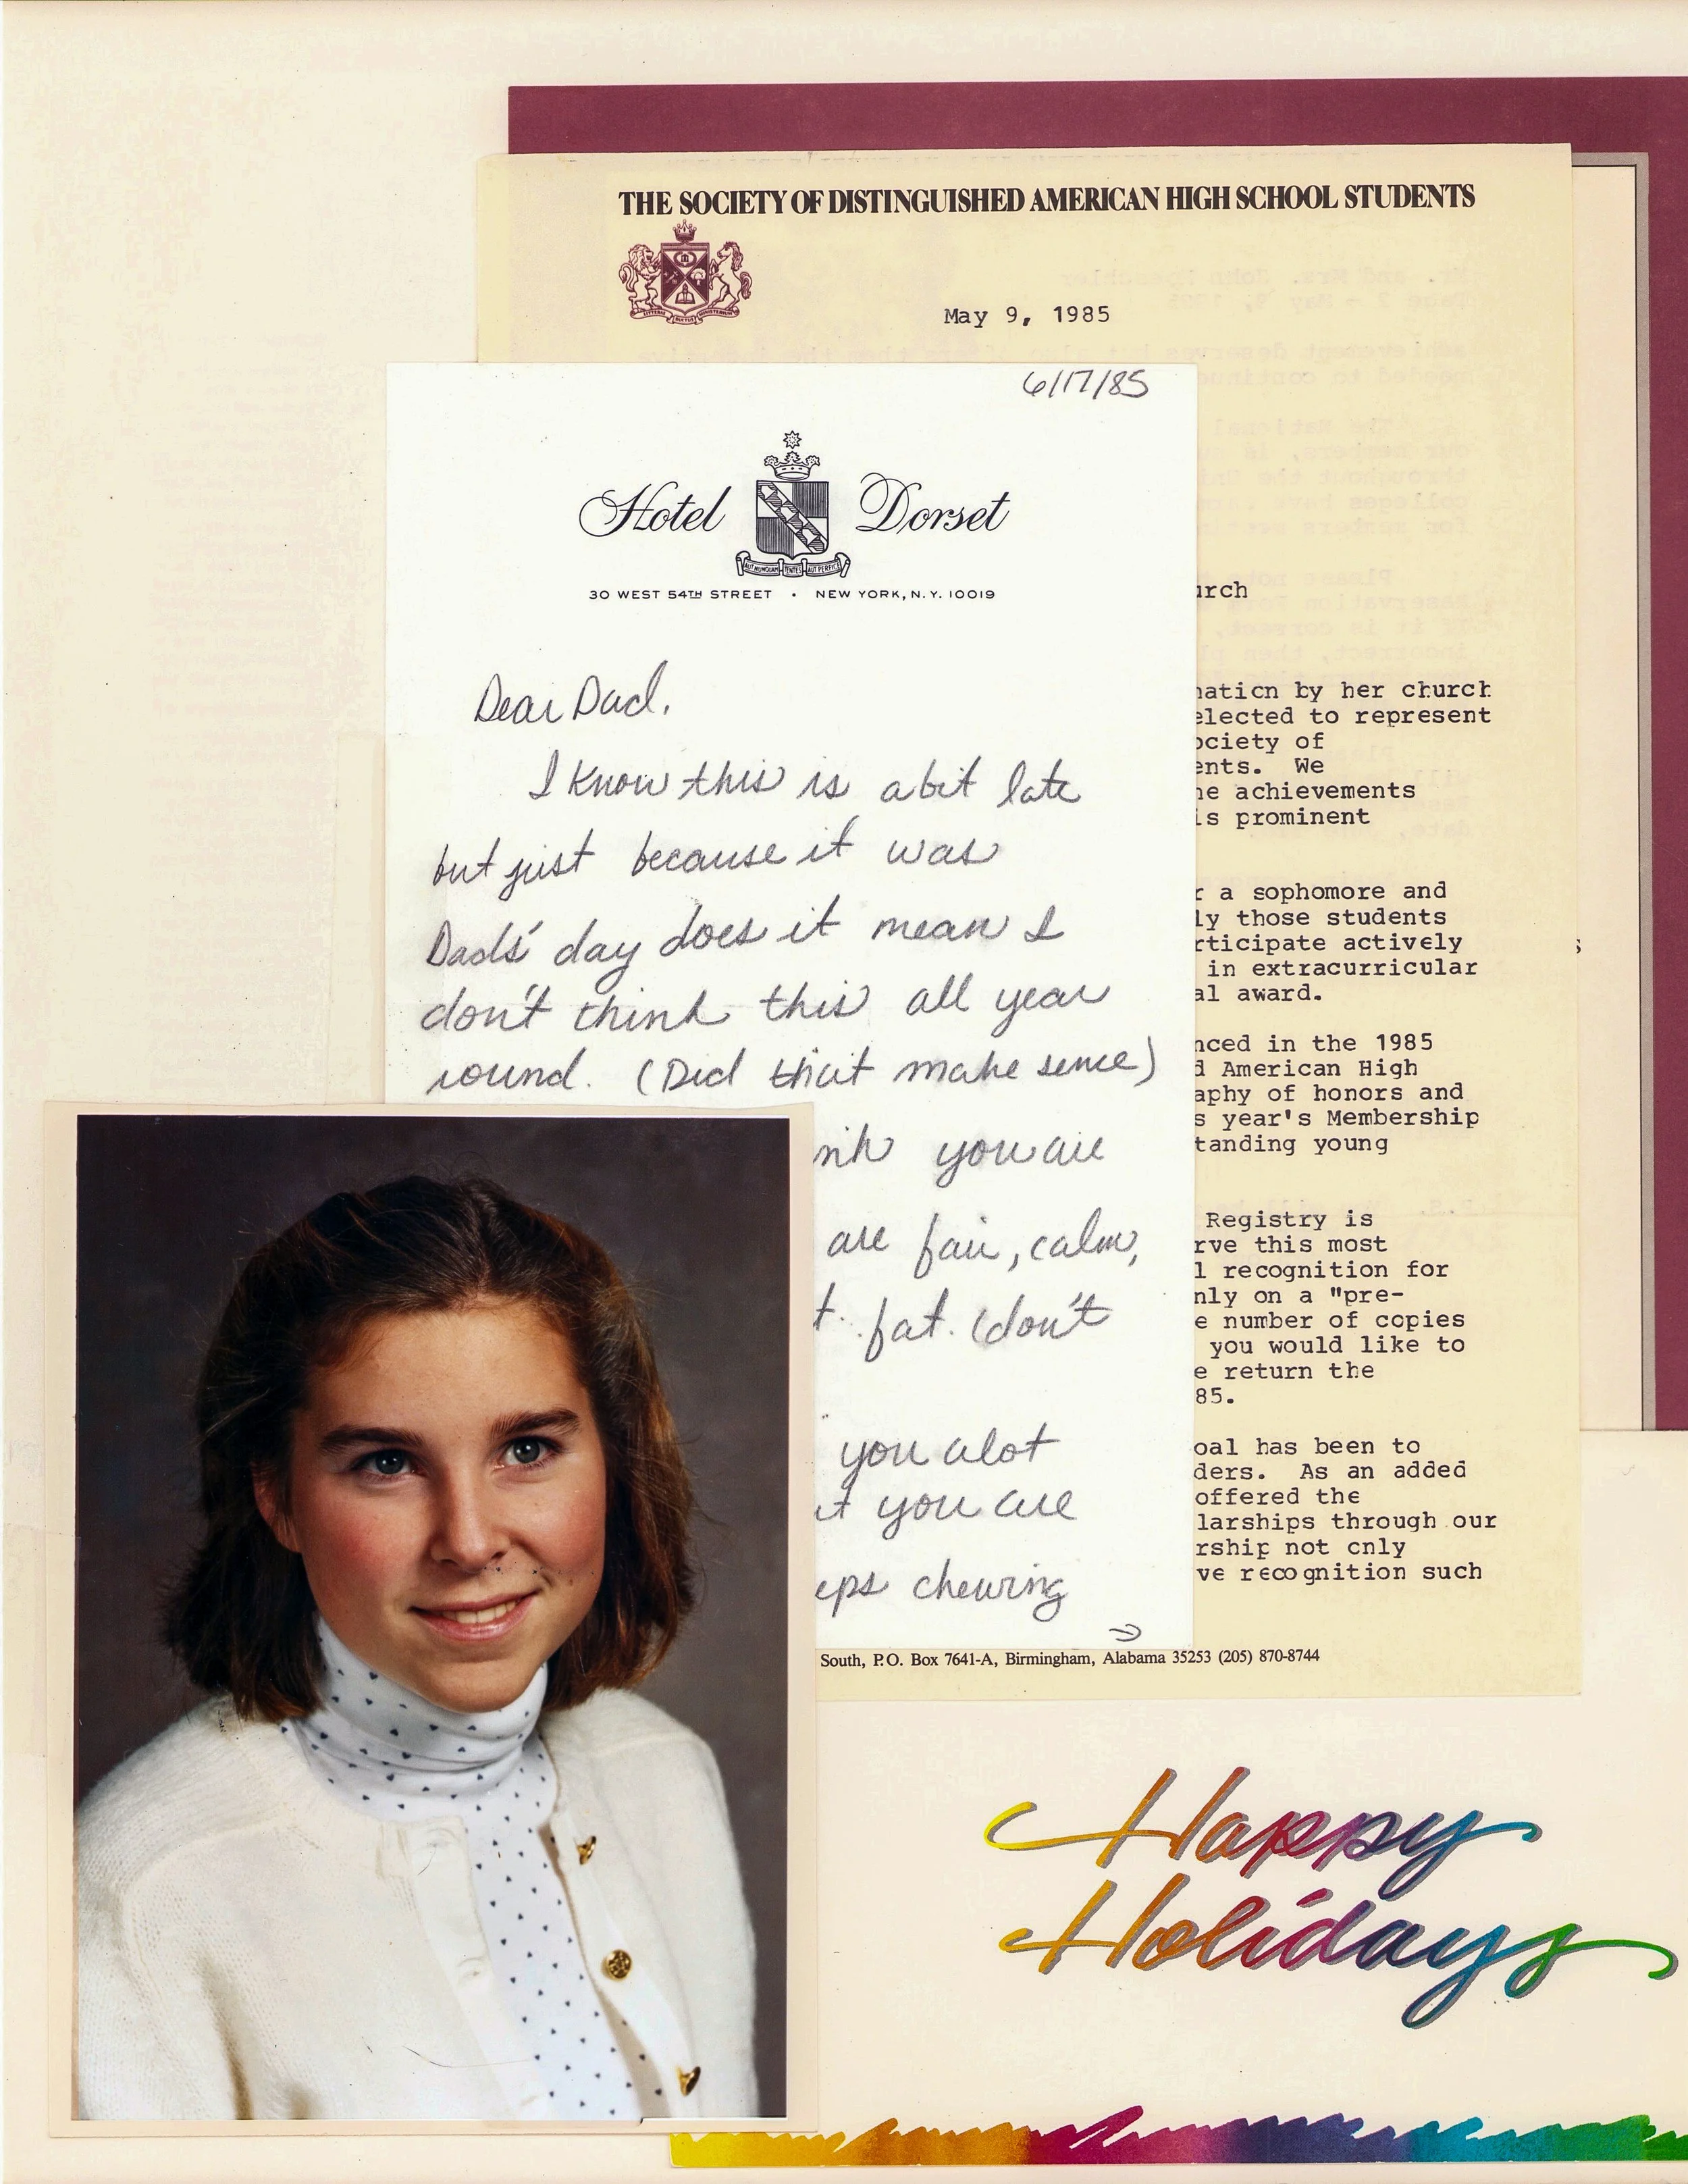 THE SOCIETY OF DISTINGUISHED AMERICAN HIGH SCHOOL STUDENTS
May 9, 1985
6/17/85
Hotel Dorset
30 WEST 54TH STREET • NEW YORK, N.Y. 10019
Dear Dad,
I know this is a bit late
but just because it was
Dads' day does it mean I
don't think this all year
round. (Did that make sence)
you are
are fair, calm,
fat. (don't
you alot
you are
eps chewing
urch
naticn by her church
elected to represent
ociety of
ents. We
he achievements
is prominent
r a sophomore and
ly those students
rticipate actively
in extracurricular
al award.
nced in the 1985
d American High
aphy of honors and
s year's Membership
tanding young
Registry is
rve this most
l recognition for
nly on a "pre-
e number of copies
you would like to
e return the
85.
oal has been to
ders. As an added
offered the
larships through our
rship not cnly
ve recognition such
South, P.O. Box 7641-A, Birmingham, Alabama 35253 (205) 870-8744
Happy
Holidays